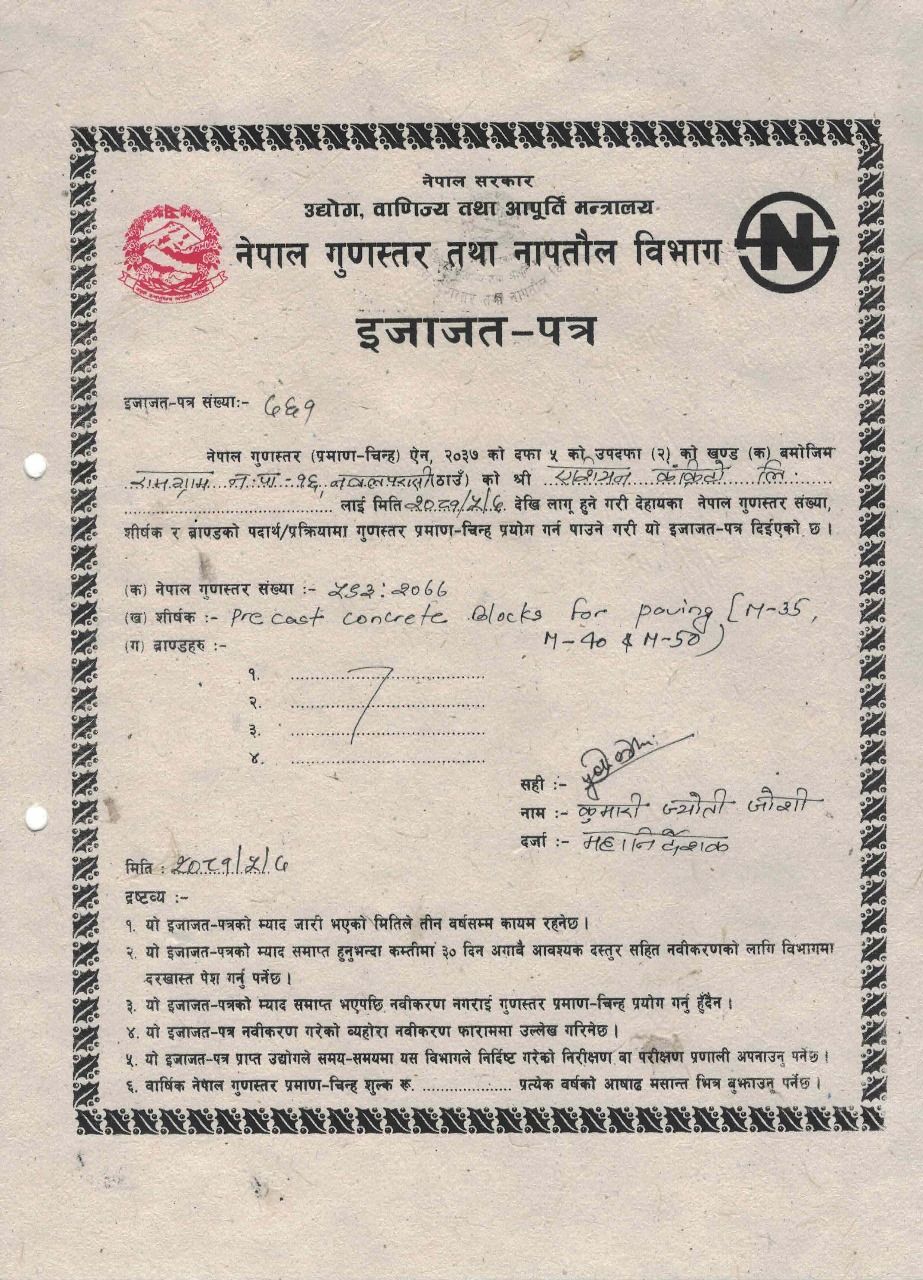 नेपाल सरकार
उद्योग, वाणिज्य तथा आपूर्ति मन्त्रालय
नेपाल गुणस्तर तथा नापतौल विभाग
इजाजत-पत्र
इजाजत-पत्र संख्या:- ७६१
नेपाल गुणस्तर (प्रमाण-चिन्ह) ऐन, २०३७ को दफा ५ को उपदफा (२) को खण्ड (क) बमोजिम
रामग्राम न.पा.-१६, नवलपरासी (ठाउँ) को श्री एशियन कंक्रिटो लि.
लाई मिति २०८१/५/७ देखि लागु हुने गरी देहायका नेपाल गुणस्तर संख्या,
शीर्षक र ब्राण्डको पदार्थ/प्रक्रियामा गुणस्तर प्रमाण-चिन्ह प्रयोग गर्न पाउने गरी यो इजाजत-पत्र दिईएको छ ।
(क) नेपाल गुणस्तर संख्या :- ५९३:२०६६
(ख) शीर्षक :- Pre cast concrete Blocks for paving [M-35,
M-40 & M-50)
(ग) ब्राण्डहरु :-
१. ........
२. ........
३. ........
४. ........
सही :-
नाम :- कुमारी ज्योती जोशी
दर्जा :- महानिर्देशक
मिति : २०८१/५/७
द्रष्टव्य :-
१. यो इजाजत-पत्रको म्याद जारी भएको मितिले तीन वर्षसम्म कायम रहनेछ ।
२. यो इजाजत-पत्रको म्याद समाप्त हुनुभन्दा कम्तीमा ३० दिन अगावै आवश्यक दस्तुर सहित नवीकरणको लागि विभागमा
दरखास्त पेश गर्नु पर्नेछ ।
३. यो इजाजत-पत्रको म्याद समाप्त भएपछि नवीकरण नगराई गुणस्तर प्रमाण-चिन्ह प्रयोग गर्नु हुँदैन ।
४. यो इजाजत-पत्र नवीकरण गरेको व्यहोरा नवीकरण फाराममा उल्लेख गरिनेछ ।
५. यो इजाजत-पत्र प्राप्त उद्योगले समय-समयमा यस विभागले निर्दिष्ट गरेको निरीक्षण वा परीक्षण प्रणाली अपनाउनु पर्नेछ ।
६. वार्षिक नेपाल गुणस्तर प्रमाण-चिन्ह शुल्क रू. .................... प्रत्येक वर्षको आषाढ मसान्त भित्र बुझाउनु पर्नेछ ।